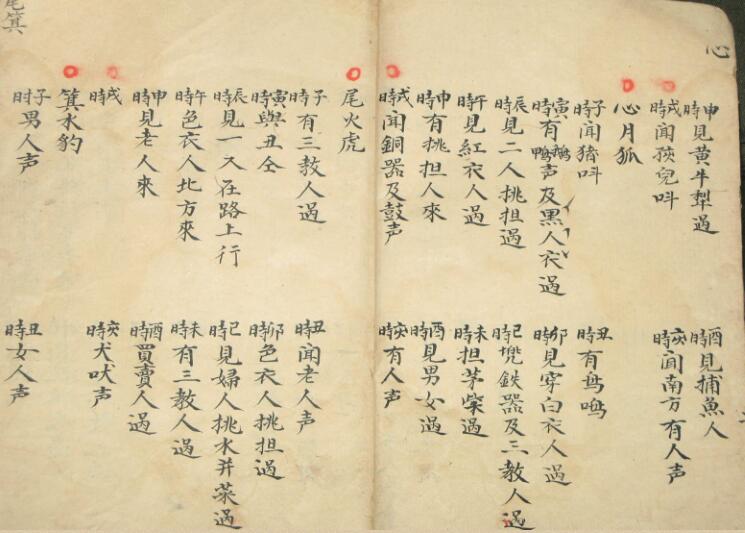 心
申時見黃牛犁過
酉時見捕魚人
戌時聞孩兒呌
亥時闻南方有人声
心月狐
子時聞猪呌
丑時有鸟鸣
寅時有鵝鴨声及黑人衣過
卯時見穿白衣人過
辰時見二人挑担過
巳時兠鉄器及三教人過
午時見紅衣人過
未時担茅柴過
申時有挑担人來
酉時見男女過
戌時聞銅器及鼓声
亥時有人声
尾火虎
子時有三教人過
丑時闻老人声
寅時與丑仝
卯時色衣人挑担過
辰時見一人在路上行
巳時見婦人挑水并菜過
午時色衣人北方來
未時有三教人過
申時見老人來
酉時買賣人過
戌時
亥時犬吠声
箕水豹
子时男人声
丑時女人声
尾箕